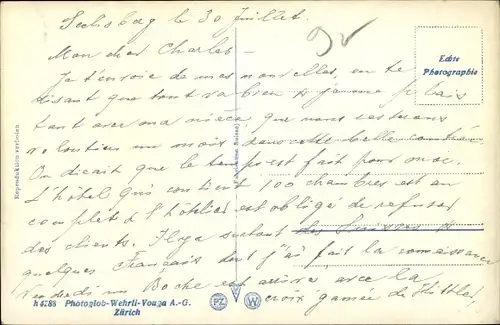 le 30 Juillet.
Mon cher Charles -
Je t'envoie de mes nouvelles, en te
disant que tout va bien
tant avec ma nièce, que nous resterons
volontiers un mois dans cette belle contrée.
On dirait que le temps est fait pour nous.
L'hôtel qui contient 100 chambres est au
complet & l'hôtelier est obligé de refuser
des clients. Il y a surtout des Suisses &
quelques Français dont j'ai fait la connaissance
Vendredi un Boche est arrivé avec la
croix gammée de Hittler,
Echte
Photographie
Reproduktion verboten
h 4788 Photoglob-Wehrli-Vouga A.-G.
Zürich
PZ
W